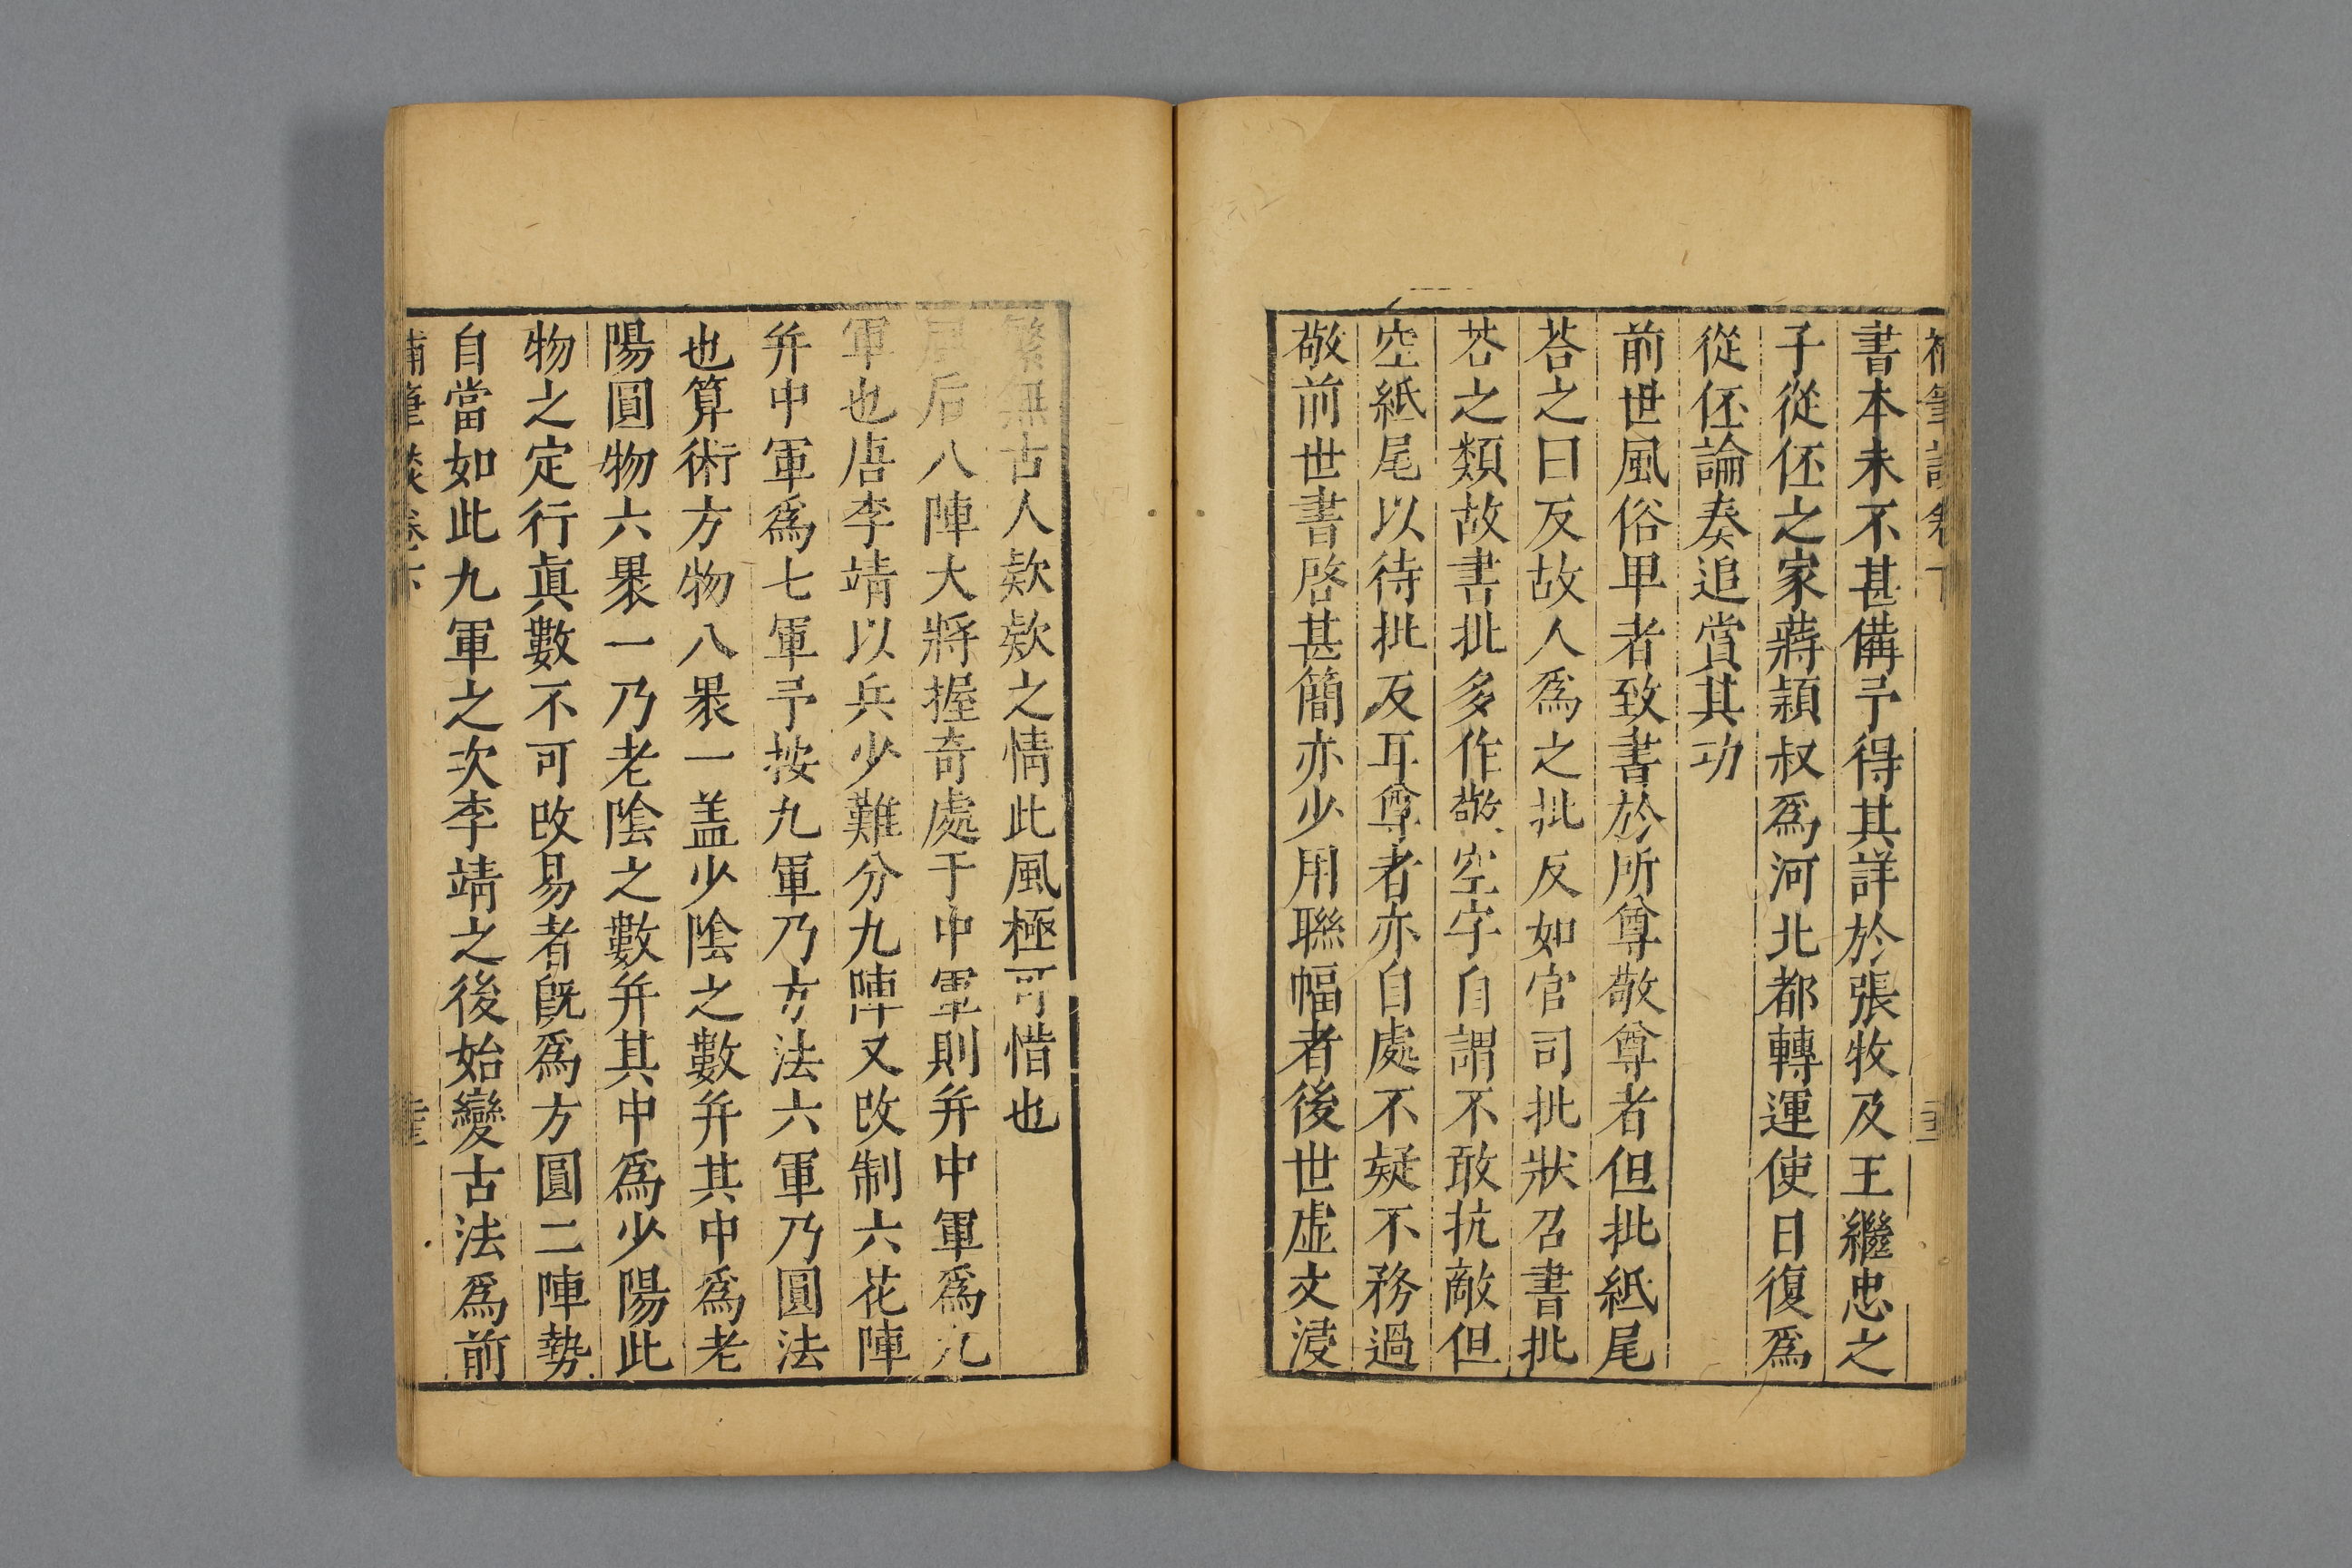 書本末不甚備予得其詳於張牧及王繼忠之
子從伾之家蔣穎叔爲河北都轉運使日復爲
從伾論奏追賞其功
前世風俗卑者致書於所尊敬尊者但批紙尾
荅之曰反故人爲之批反如官司批狀召書批
荅之類故書批多作敬空字自謂不敢抗敵但
空紙尾以待批反耳尊者亦自處不疑不務過
敬前世書啓甚簡亦少用聯幅者後世虛文浸
繁無古人欵欵之情此風極可惜也
風后八陣大將握奇處于中軍則幷中軍爲九
軍也唐李靖以兵少難分九陣又改制六花陣
幷中軍爲七軍予按九軍乃方法六軍乃圓法
也算術方物八裹一盖少陰之數幷其中爲老
陽圓物六裹一乃老陰之數幷其中爲少陽此
物之定行眞數不可改易者旣爲方圓二陣勢
自當如此九軍之次李靖之後始變古法爲前
補筆談卷下